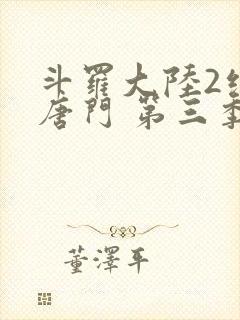 斗羅大陸2
唐門 第三季
董澤平